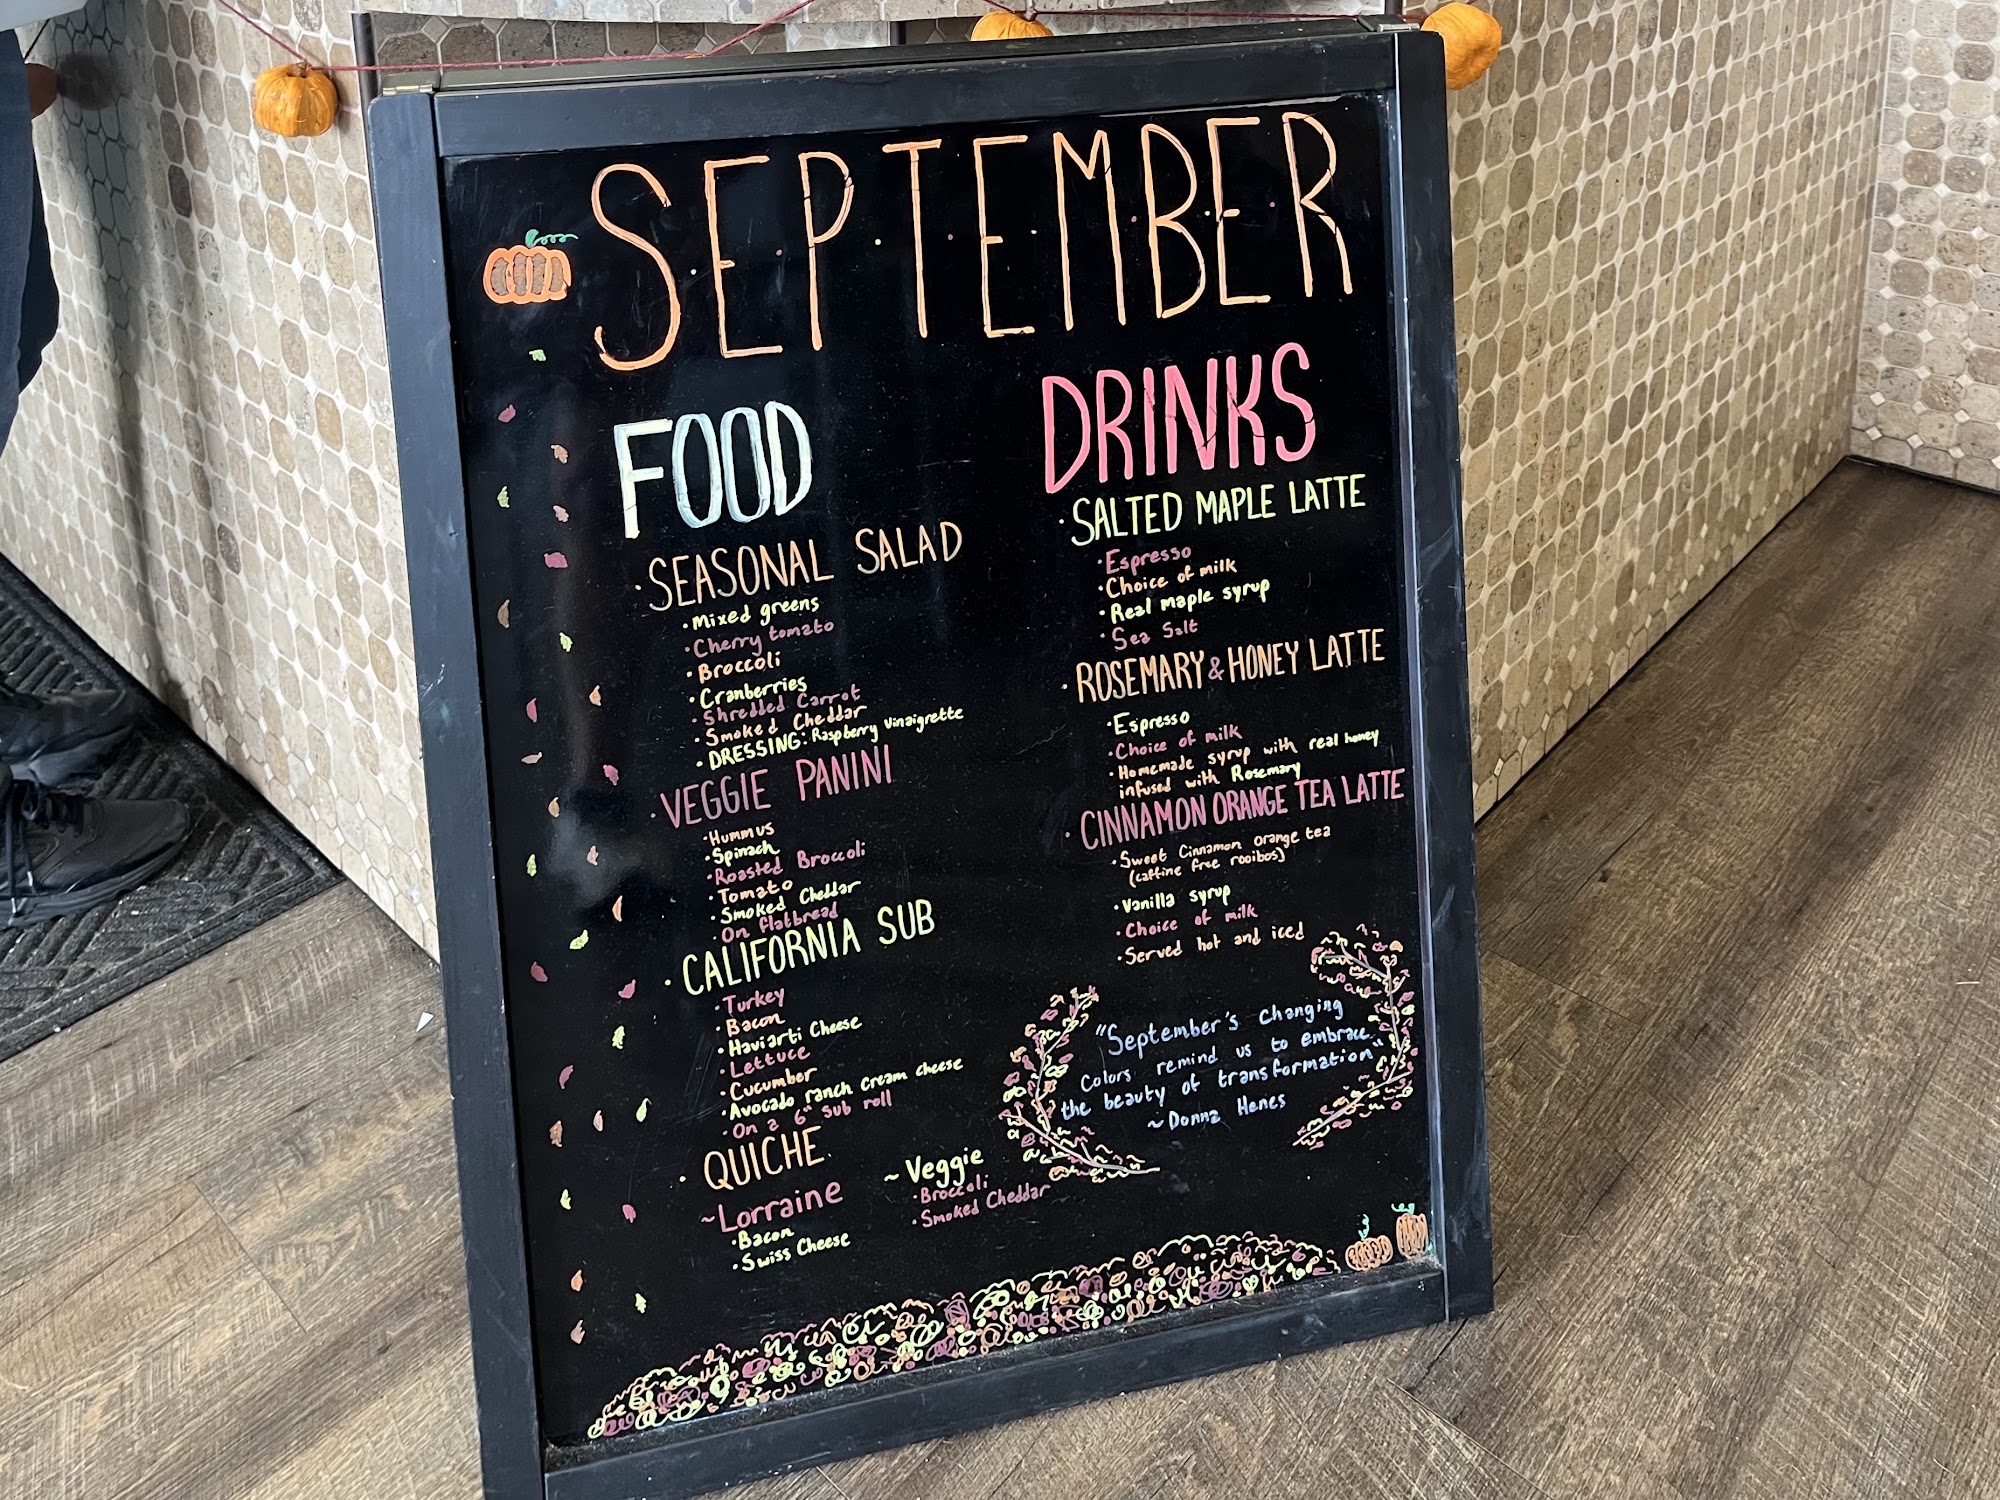 SEPTEMBER
FOOD
· SEASONAL SALAD
· Mixed greens
· Cherry tomato
· Broccoli
· Cranberries
· Shredded Carrot
· Smoked Cheddar
· DRESSING: Raspberry Vinaigrette
· VEGGIE PANINI
· Hummus
· Spinach
· Roasted Broccoli
· Tomato
· Smoked Cheddar
· On flatbread
· CALIFORNIA SUB
· Turkey
· Bacon
· Haviarti Cheese
· Lettuce
· Cucumber
· Avocado ranch cream cheese
· On a 6" sub roll
· QUICHE
~Lorraine
· Bacon
· Swiss Cheese
~Veggie
· Broccoli
· Smoked Cheddar
DRINKS
· SALTED MAPLE LATTE
· Espresso
· Choice of milk
· Real maple syrup
· Sea Salt
· ROSEMARY & HONEY LATTE
· Espresso
· Choice of milk
· Homemade syrup with real honey
infused with Rosemary
· CINNAMON ORANGE TEA LATTE
· Sweet Cinnamon orange tea
(caffine free rooibos)
· Vanilla syrup
· Choice of milk
· Served hot and iced
"September's changing
colors remind us to embrace
the beauty of transformation"
~Donna Henes